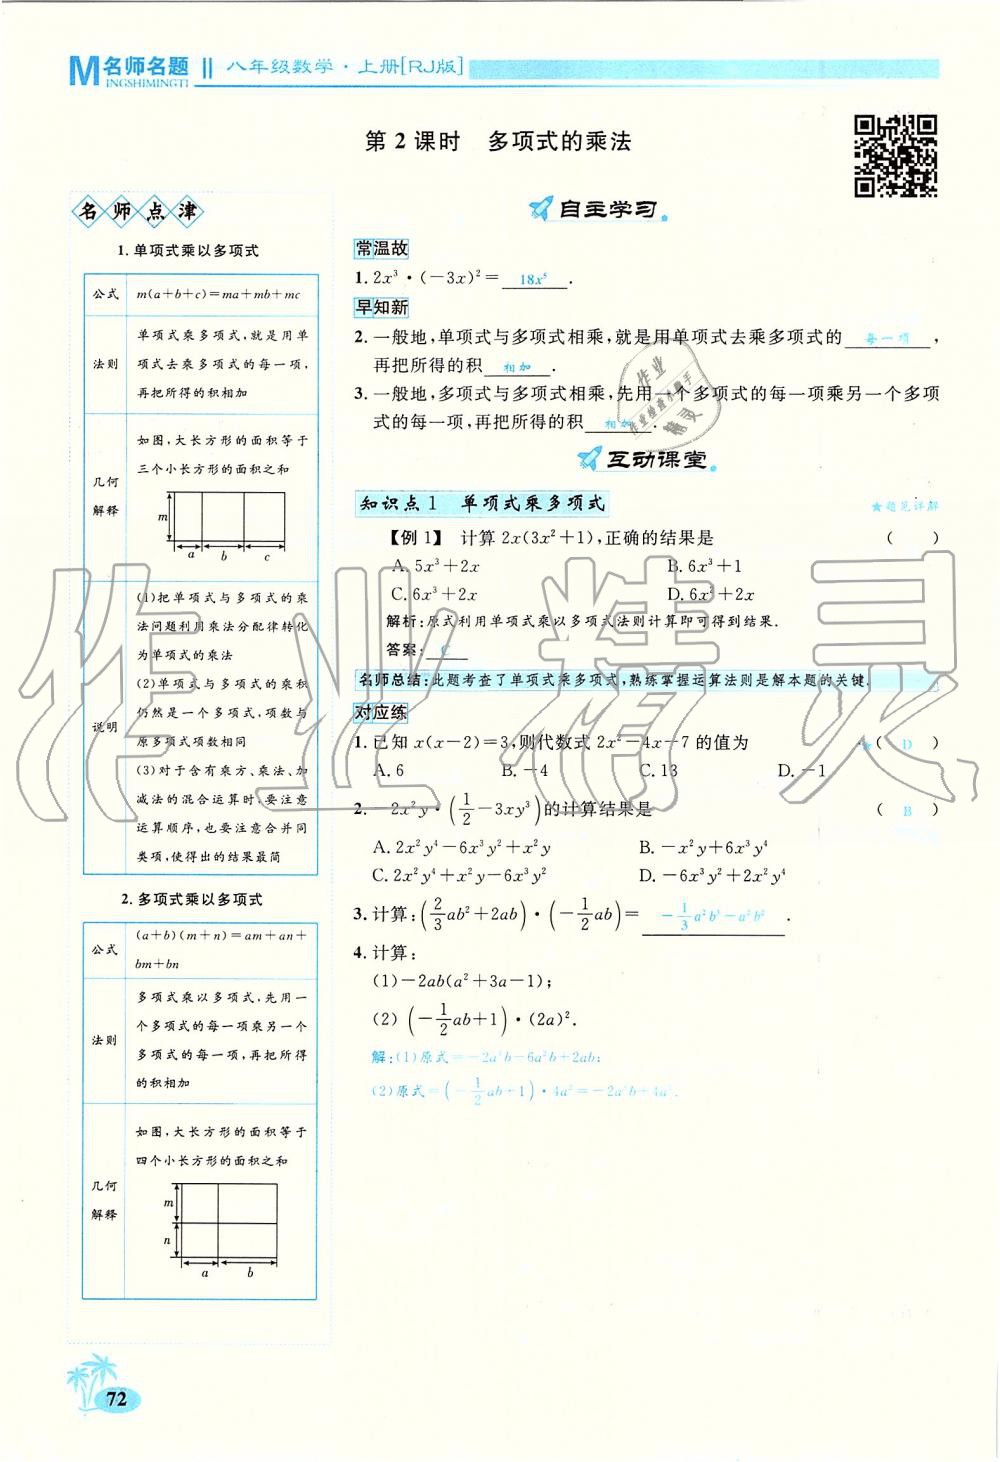 M名师名题
INGSHIMINGTI
八年级数学·上册[RJ版]
第2课时 多项式的乘法
名师点津
1. 单项式乘以多项式
公式 m(a+b+c)=ma+mb+mc
法则
单项式乘多项式,就是用单
项式去乘多项式的每一项,
再把所得的积相加
几何
解释
如图,大长方形的面积等于
三个小长方形的面积之和
m
a b c
说明
(1)把单项式与多项式的乘
法问题利用乘法分配律转化
为单项式的乘法
(2)单项式与多项式的乘积
仍然是一个多项式,项数与
原多项式项数相同
(3)对于含有乘方、乘法、加
减法的混合运算时,要注意
运算顺序,也要注意合并同
类项,使得出的结果最简
2. 多项式乘以多项式
公式
(a+b)(m+n)=am+an+
bm+bn
法则
多项式乘以多项式,先用一
个多项式的每一项乘另一个
多项式的每一项,再把所得
的积相加
几何
解释
如图,大长方形的面积等于
四个小长方形的面积之和
m
n
a b
72
自主学习
常温故
1. 2x³·(-3x)²= 18x⁵ .
早知新
2. 一般地,单项式与多项式相乘,就是用单项式去乘多项式的 每一项 ,
再把所得的积 相加 .
3. 一般地,多项式与多项式相乘,先用一个多项式的每一项乘另一个多项
式的每一项,再把所得的积 相加 .
互动课堂
知识点1 单项式乘多项式
★题见详解
【例1】 计算2x(3x²+1),正确的结果是 ( )
A. 5x³+2x B. 6x³+1
C. 6x³+2x D. 6x²+2x
解析:原式利用单项式乘以多项式法则计算即可得到结果.
答案: C
名师总结:此题考查了单项式乘多项式,熟练掌握运算法则是解本题的关键.
对应练
1. 已知x(x-2)=3,则代数式2x²-4x-7的值为 ( D )
A. 6 B. -4 C. 13 D. -1
2. -2x²y·(1/2-3xy³)的计算结果是 ( B )
A. 2x²y⁴-6x³y²+x²y B. -x²y+6x³y⁴
C. 2x²y⁴+x²y-6x³y² D. -6x³y²+2x²y⁴
3. 计算:(2/3ab²+2ab)·(-1/2ab)= -1/3a²b³-a²b² .
4. 计算:
(1)-2ab(a²+3a-1);
(2) (-1/2ab+1)·(2a)².
解:(1)原式=-2a³b-6a²b+2ab;
(2)原式=(-1/2ab+1)·4a²=-2a³b+4a².
作业精灵
作业
作业检查小助手
精灵